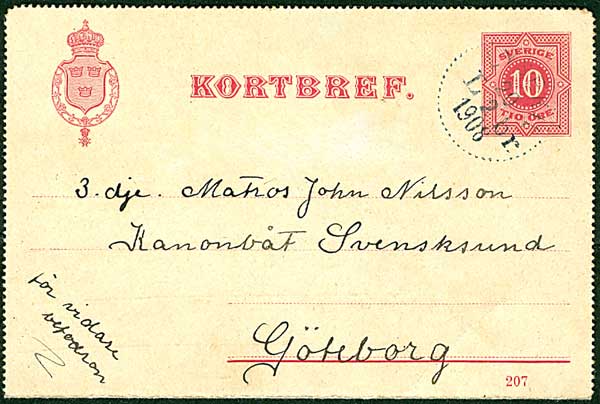 KORTBREF.
SVERIGE
10
TIO ÖRE
1906
3.dje. Matros John Nilsson
Kanonbåt Svensksund
för vidare
Göteborg
207